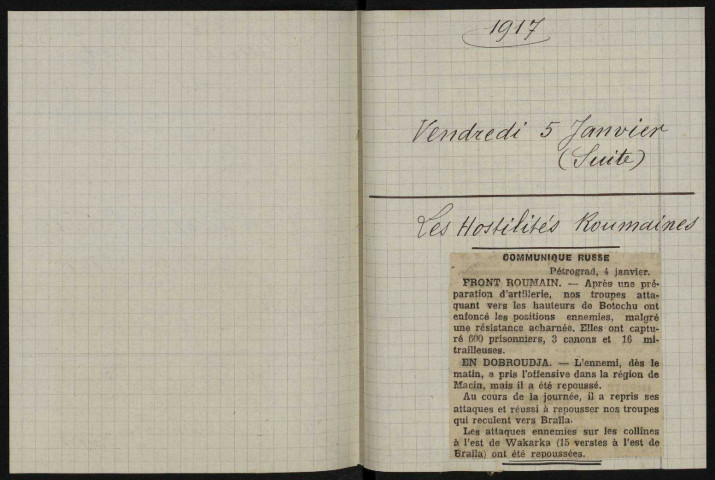 1917
Vendredi 5 Janvier
(Suite)
Les Hostilités Roumaines
COMMUNIQUE RUSSE
Pétrograd, 4 janvier.
FRONT ROUMAIN. — Après une pré-
paration d'artillerie, nos troupes atta-
quant vers les hauteurs de Botochu ont
enfoncé les positions ennemies, malgré
une résistance acharnée. Elles ont captu-
ré 600 prisonniers, 3 canons et 16 mi-
trailleuses.
EN DOBROUDJA. — L'ennemi, dès le
matin, a pris l'offensive dans la région de
Macin, mais il a été repoussé.
Au cours de la journée, il a repris ses
attaques et réussi à repousser nos troupes
qui reculent vers Braïla.
Les attaques ennemies sur les collines
à l'est de Wakarka (15 verstes à l'est de
Braïla) ont été repoussées.